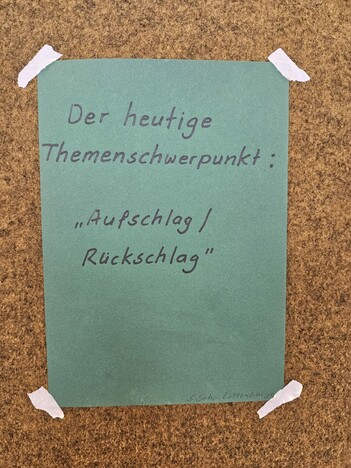 Der heutige
Themenschwerpunkt:
„Aufschlag/
Rückschlag"